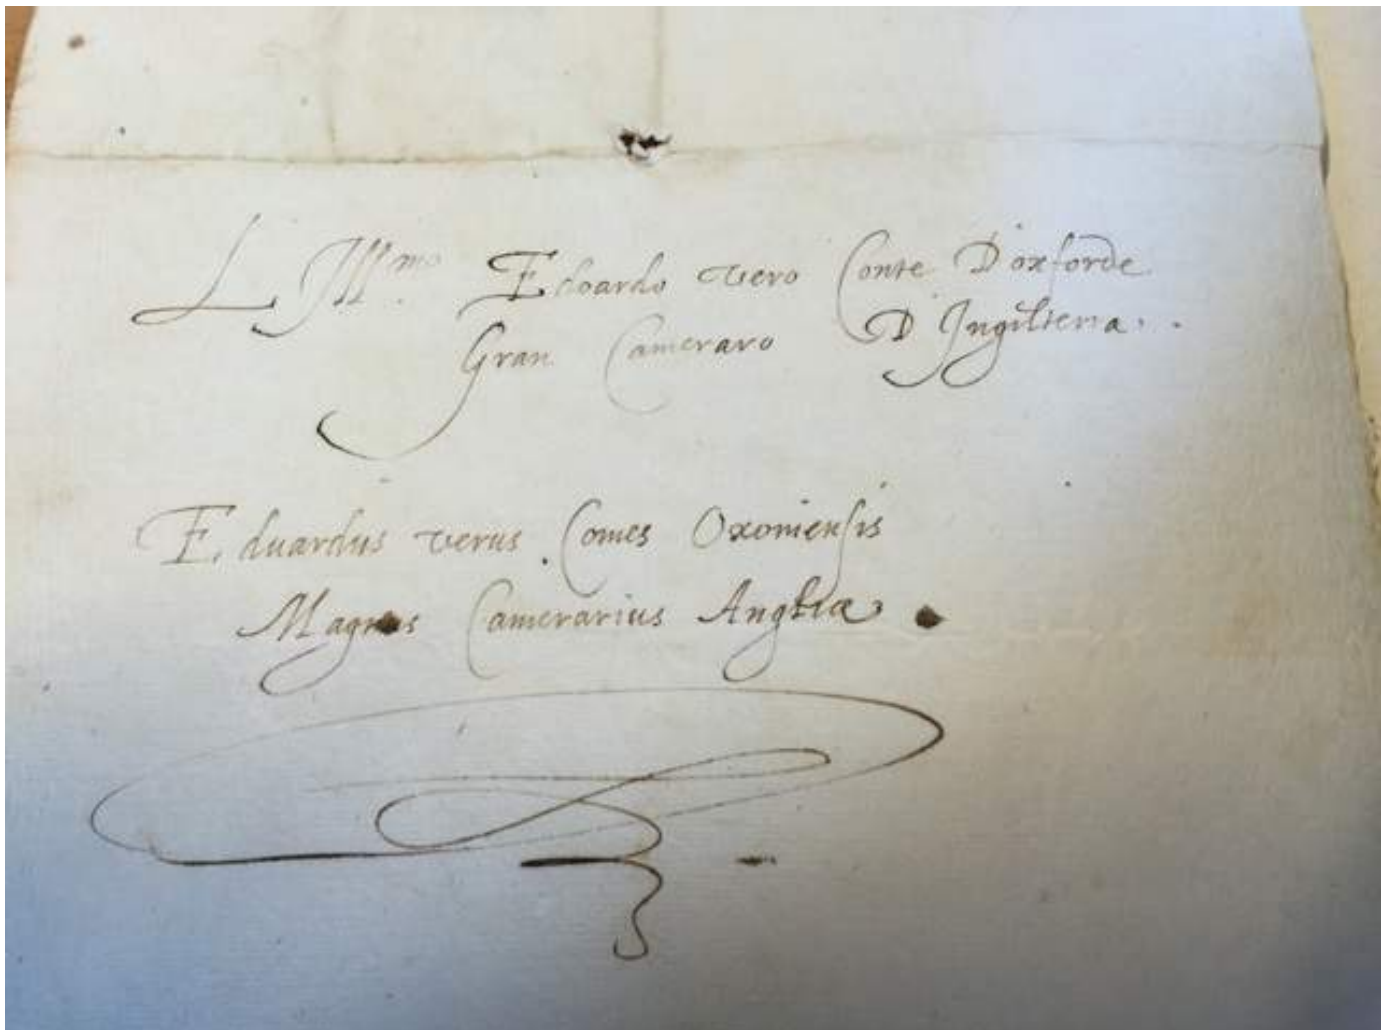 L Ill.mo Edoardo vero Conte D'oxforde
Gran Cameraro D'Ingilterra.
Eduardus verus. Comes Oxoniensis
Magnus Camerarius Angliæ.